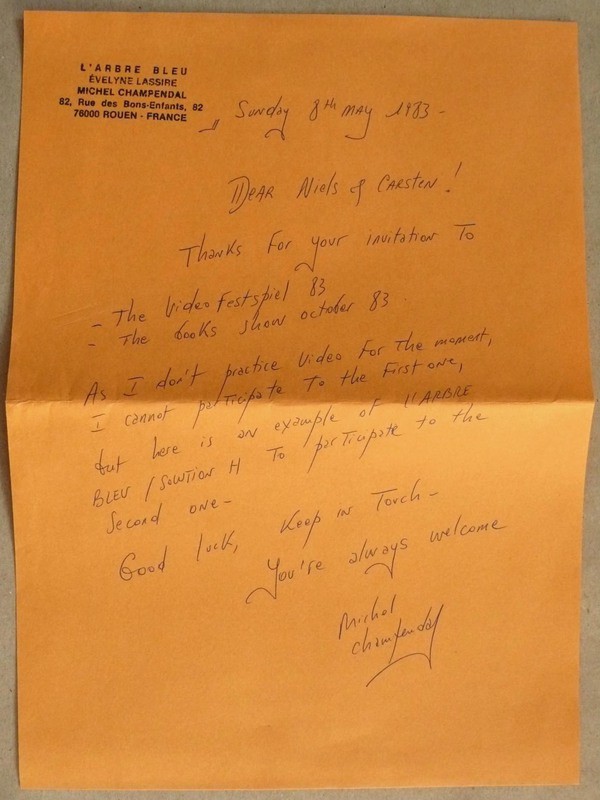 L'ARBRE BLEU
ÉVELYNE LASSIRE
MICHEL CHAMPENDAL
82, Rue des Bons-Enfants, 82
76000 ROUEN - FRANCE
Sunday 8th May 1983 -
DEAR Niels & CARSTEN!
Thanks For your invitation To
- The VideoFestspiel 83
- The books show october 83.
As I don't practice Video For The moment,
I cannot participate To the First one,
but here is an example of L'ARBRE
BLEU / SOLUTION H To participate to the
Second one -
Good luck, Keep in Torch -
You're always welcome
Michel
Champendal